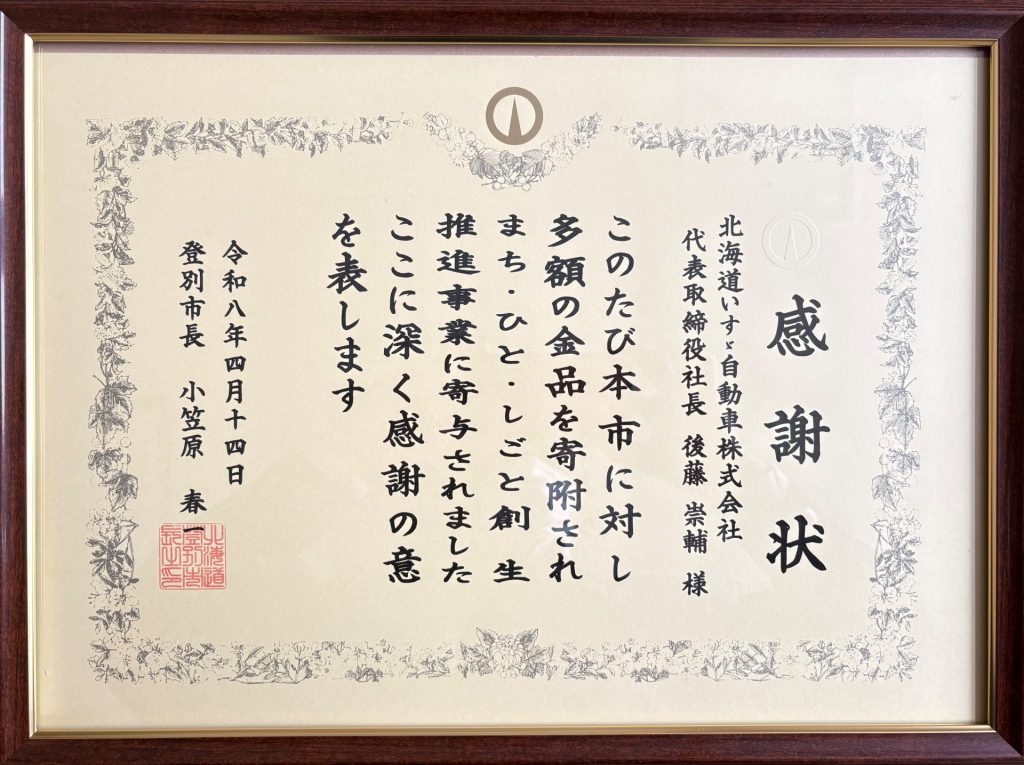 感謝状
北海道いすゞ自動車株式会社
代表取締役社長 後藤 崇輔 様
このたび本市に対し
多額の金品を寄附され
まち・ひと・しごと創生
推進事業に寄与されました
ここに深く感謝の意
を表します
令和八年四月十四日
登別市長 小笠原 春一
北海道
登別市
長之印